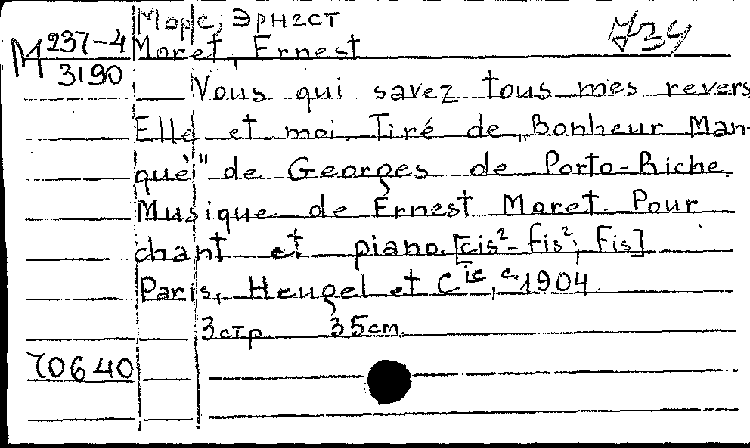 Морє, Эрнєст
М 237-4 Moret, Ernest 739
3190
Vous qui savez tous mes revers
Elle et moi. Tiré de „Bonheur Man-
què" de Georges de Porto-Riche.
Musique de Ernest Moret. Pour
chant et piano. [cis²-fis²; Fis]
Paris, Heugel et Cie, c. 1904
3 стр 35 cm.
70640